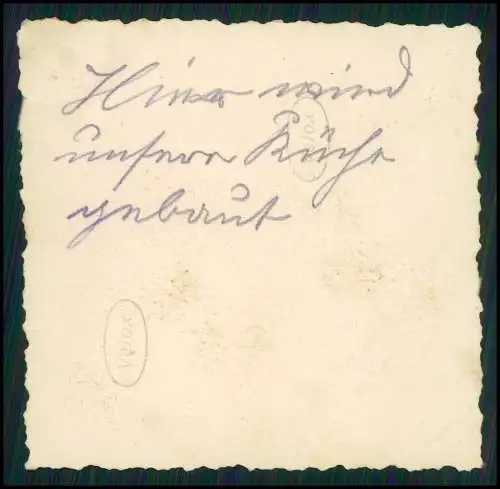 Hier wird
unsere Küche
gebaut
VELOX
VELOX